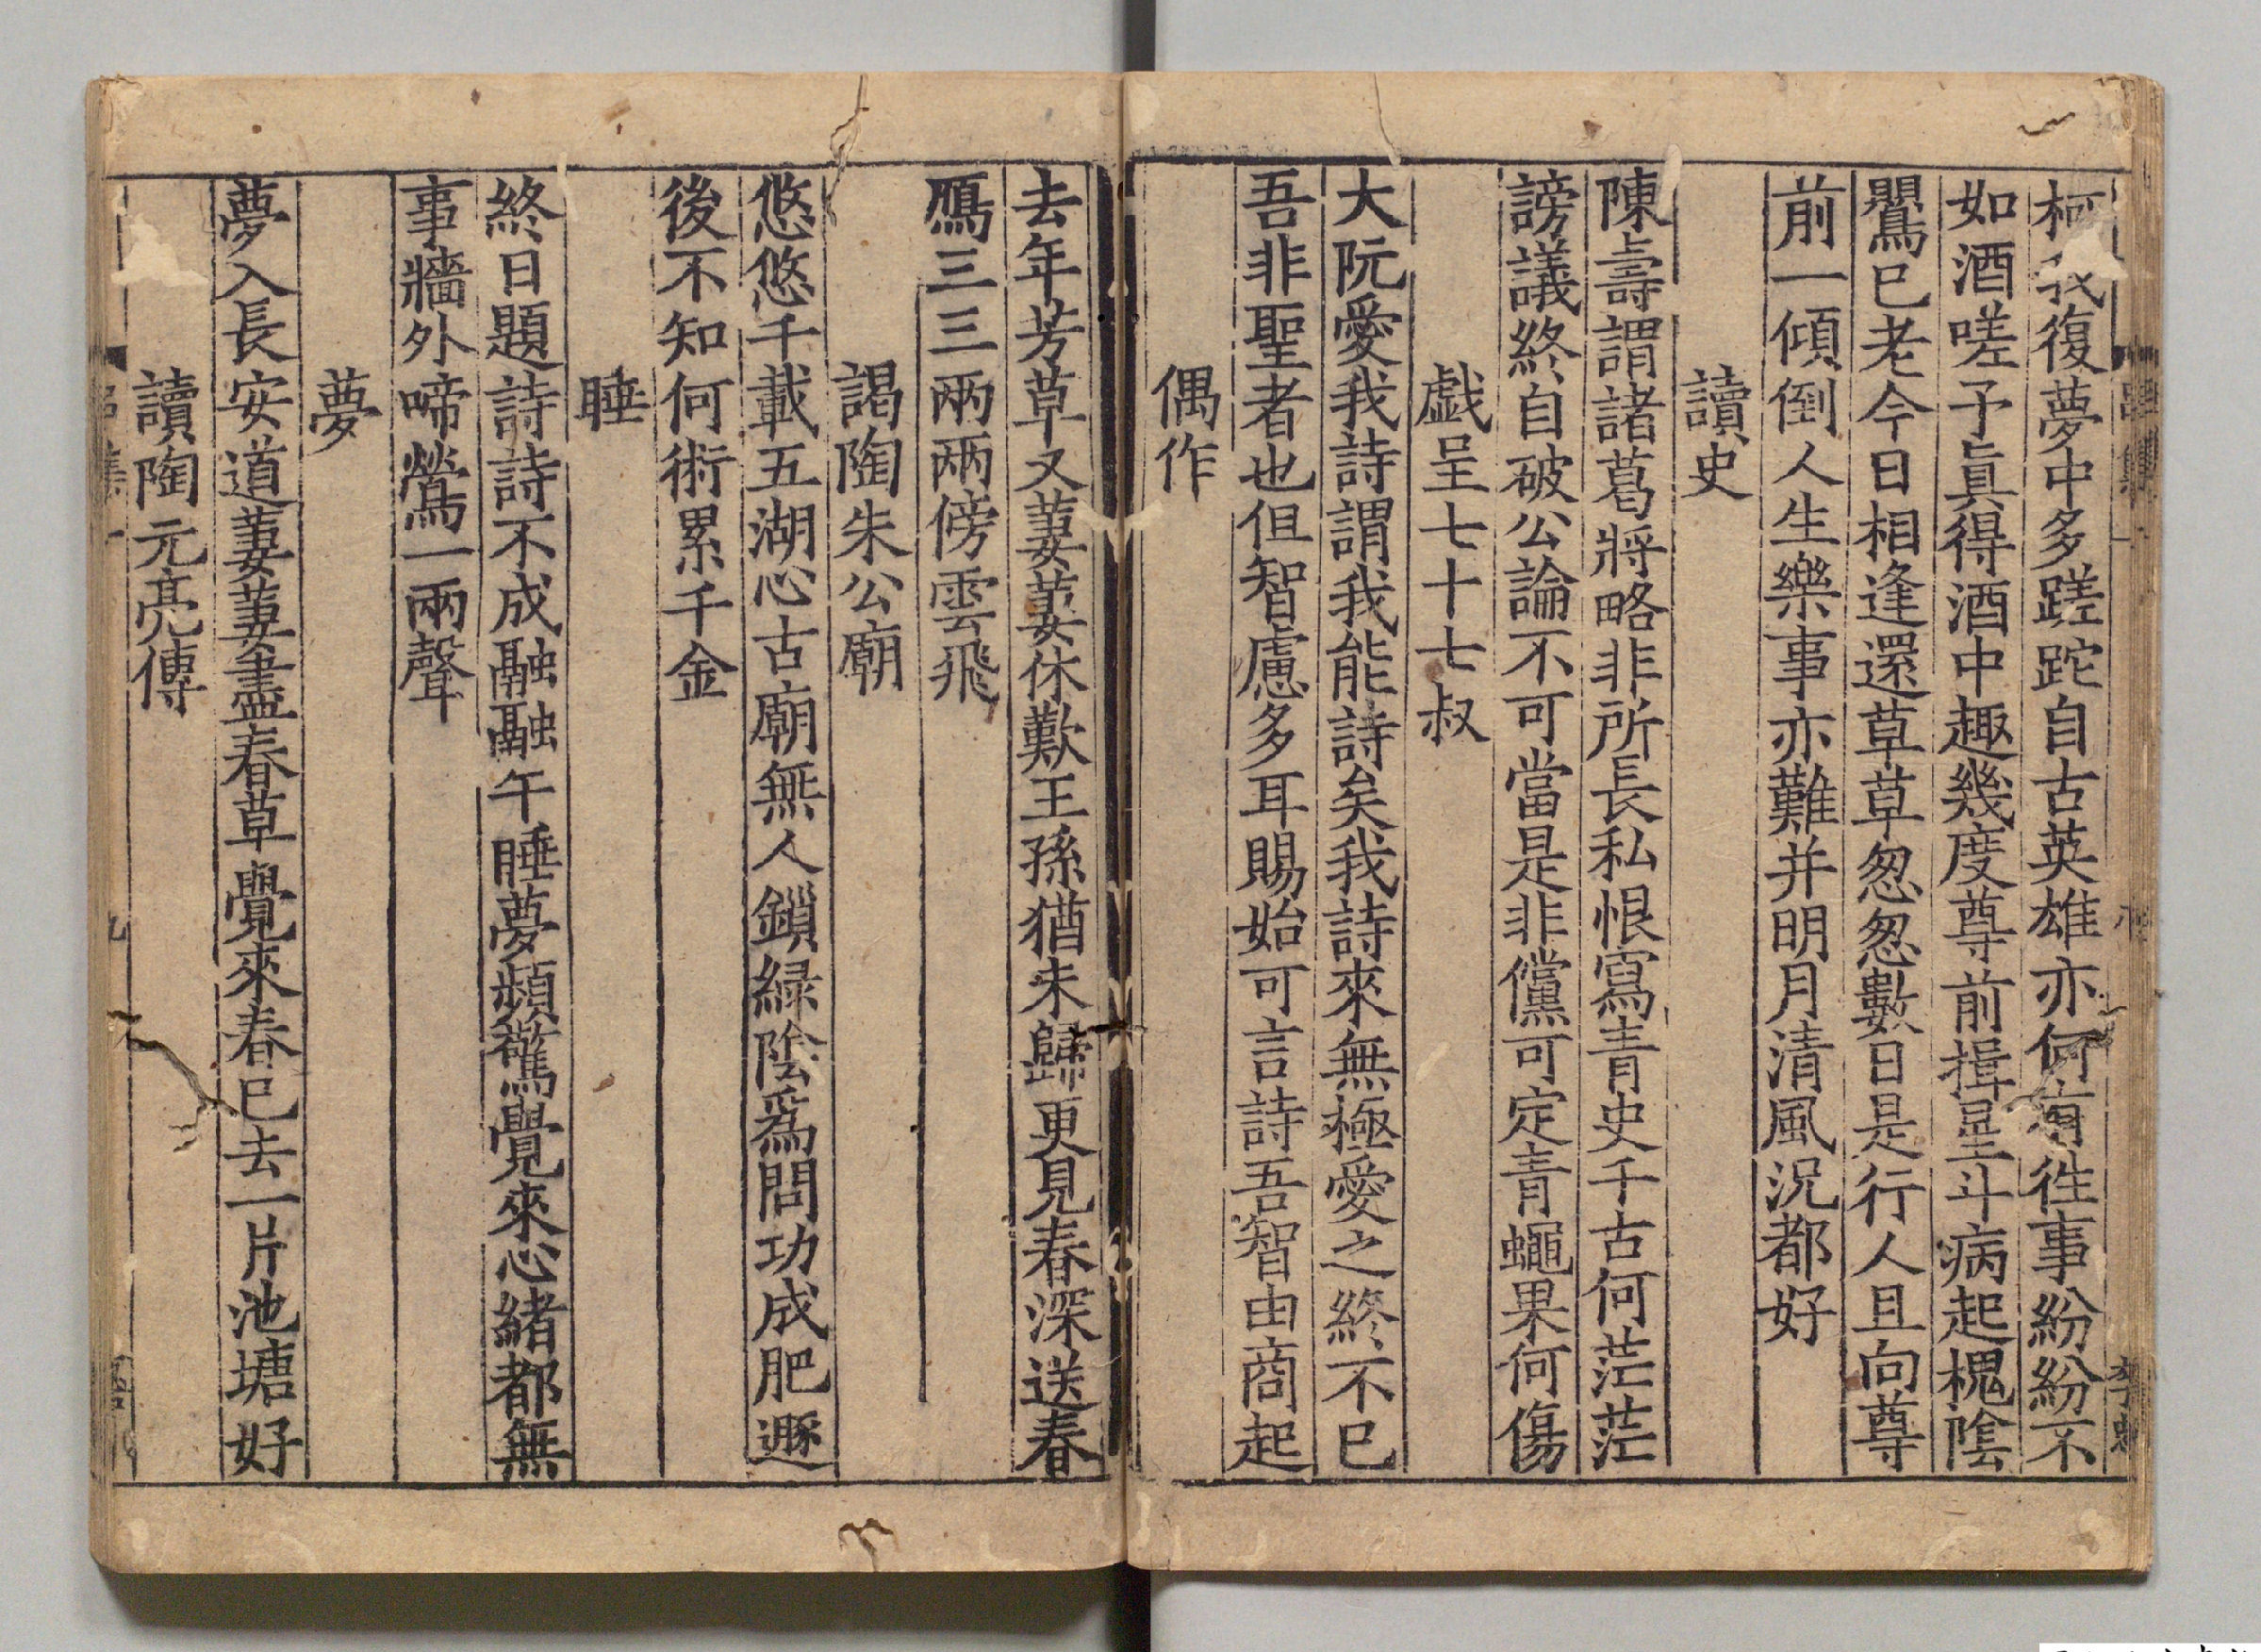 柯我復夢中多蹉跎自古英雄亦何有往事紛紛不
如酒嗟予眞得酒中趣幾度尊前揖星斗病起槐陰
鸎已老今日相逢還草草怱怱數日是行人且向尊
前一傾倒人生樂事亦難并明月清風況都好
讀史
陳壽謂諸葛將略非所長私恨寫青史千古何茫茫
謗議終自破公論不可當是非儻可定青蠅果何傷
戱呈七十七叔
大阮愛我詩謂我能詩矣我詩來無極愛之終不已
吾非聖者也但智慮多耳賜始可言詩吾智由商起
偶作
去年芳草又萋萋休歎王孫猶未歸更見春深送春
鴈三三兩兩傍雲飛
謁陶朱公廟
悠悠千載五湖心古廟無人鎖緑陰爲問功成肥遯
後不知何術累千金
睡
終日題詩詩不成融融午睡夢頻驚覺來心緒都無
事牆外啼鶯一兩聲
夢
夢入長安道萋萋盡春草覺來春已去一片池塘好
讀陶元亮傳